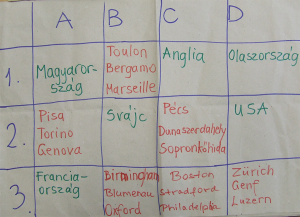 A B C D
1. Magyaror-
szág
Toulon
Bergamo
Marseille
Anglia
Olaszország
2. Pisa
Torino
Genova
Svájc
Pécs
Dunaszerdahely
Sopronkőhida
USA
3. Francia-
ország
Birmingham
Blumenau
Oxford
Boston
Stradford
Philadelphia
Zürich
Genf
Luzern